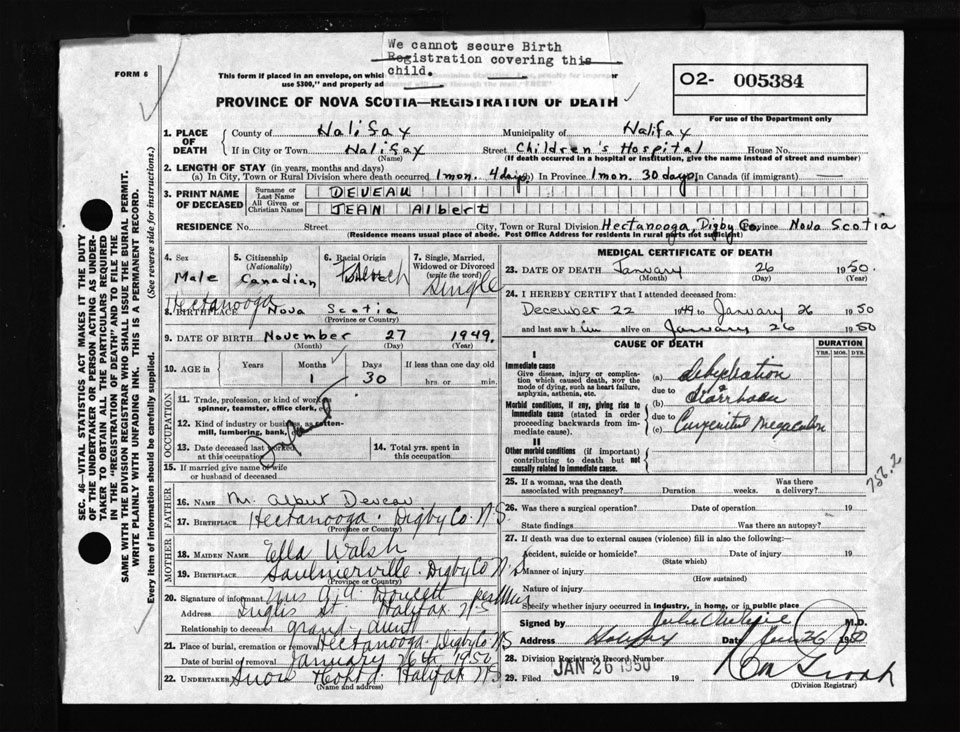 We cannot secure Birth
Registration covering this
child.
FORM 6
This form if placed in an envelope, on which
use $300," and properly ad
O2- 005384
For use of the Department only
PROVINCE OF NOVA SCOTIA—REGISTRATION OF DEATH
1. PLACE OF DEATH
County of Halifax Municipality of Halifax
If in City or Town Halifax Street Children's Hospital House No.
(Name) (If death occurred in a hospital or institution, give the name instead of street and number)
2. LENGTH OF STAY (in years, months and days)
(a) In City, Town or Rural Division where death occurred 1 mon. 4 days (b) In Province 1 mon. 30 days (c) In Canada (if immigrant) —
3. PRINT NAME OF DECEASED
Surname or Last Name DEVEAU
All Given or Christian Names JEAN Albert
RESIDENCE No. Street City, Town or Rural Division Hectanooga, Digby Co. Province Nova Scotia
(Residence means usual place of abode. Post Office Address for residents in rural parts not sufficient)
4. Sex Male
5. Citizenship (Nationality) Canadian
6. Racial Origin French
7. Single, Married, Widowed or Divorced (write the word) Single
Hectanooga
8. BIRTHPLACE Nova Scotia
(Province or Country)
9. DATE OF BIRTH November 27 1949.
(Month) (Day) (Year)
10. AGE in Years Months 1 Days 30 If less than one day old hrs. or min.
OCCUPATION
11. Trade, profession, or kind of work
spinner, teamster, office clerk,
12. Kind of industry or business, as cotton-
mill, lumbering, bank,
13. Date deceased last worked
at this occupation
14. Total yrs. spent in
this occupation
15. If married give name of wife
or husband of deceased
FATHER
16. NAME Mr. Albert Deveau
17. BIRTHPLACE Hectanooga. Digby Co. N.S
(Province or Country)
MOTHER
18. MAIDEN NAME Ella Walsh
19. BIRTHPLACE Saulnierville Digby Co N.S
(Province or Country)
20. Signature of informant Mrs Doucett
Address Inglis St. Halifax N.S
Relationship to deceased grand-aunt
21. Place of burial, cremation or removal Hectanooga Digby Co NS
Date of burial or removal January 26th 1950
22. UNDERTAKER Snow Halifax NS
(Name and address)
MEDICAL CERTIFICATE OF DEATH
23. DATE OF DEATH January 26 1950.
(Month) (Day) (Year)
24. I HEREBY CERTIFY that I attended deceased from:
December 22 1949 to January 26 1950
and last saw him alive on January 26 1950
CAUSE OF DEATH
DURATION
YRS. MOS. DYS.
I
Immediate cause
Give disease, injury or complica-
tion which caused death, NOT the
mode of dying, such as heart failure,
asphyxia, asthenia, etc.
(a) dehydration
due to
Morbid conditions, if any, giving rise to
immediate cause (stated in order
proceeding backwards from im-
mediate cause).
diarrhoea
due to
(c) Congenital Megacolon
II
Other morbid conditions (if important)
contributing to death but not
causally related to immediate cause.
756.2
25. If a woman, was the death
associated with pregnancy? Duration weeks. Was there
a delivery?
26. Was there a surgical operation? Date of operation 19
State findings Was there an autopsy?
27. If death was due to external causes (violence) fill in also the following:—
Accident, suicide or homicide? Date of injury 19
Manner of injury
(How sustained)
Nature of injury
Specify whether injury occurred in industry, in home, or in public place
Signed by M.D.
Address Halifax Date Jan 26 1950
28. Division Registrar's Record Number
29. Filed JAN 26 1950 19
(Division Registrar)
SEC. 46—VITAL STATISTICS ACT MAKES IT THE DUTY
OF THE UNDERTAKER OR PERSON ACTING AS UNDER-
TAKER TO OBTAIN ALL THE PARTICULARS REQUIRED
IN THE "REGISTRATION OF DEATH" AND TO FILE THE
SAME WITH THE DIVISION REGISTRAR WHO SHALL ISSUE THE BURIAL PERMIT.
WRITE PLAINLY WITH UNFADING INK. THIS IS A PERMANENT RECORD.
Every item of information should be carefully supplied. (See reverse side for instructions.)